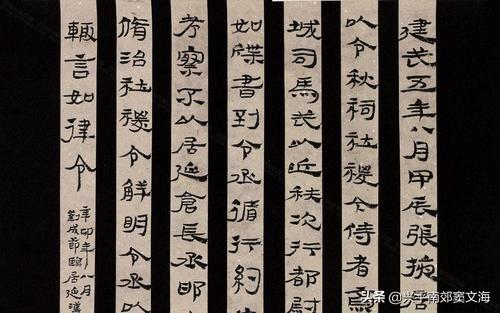 建武五年八月甲辰張掖居
以令秋祠社稷令侍者爲
城司馬武以近秩次行都尉
如牒書到令丞循行約
考察不以居延倉長丞邯
脩治社稷令鮮明令丞以
輒言如律令
辛卯年八月
劉成節臨居延漢
头条 @兴平南郊窦文海